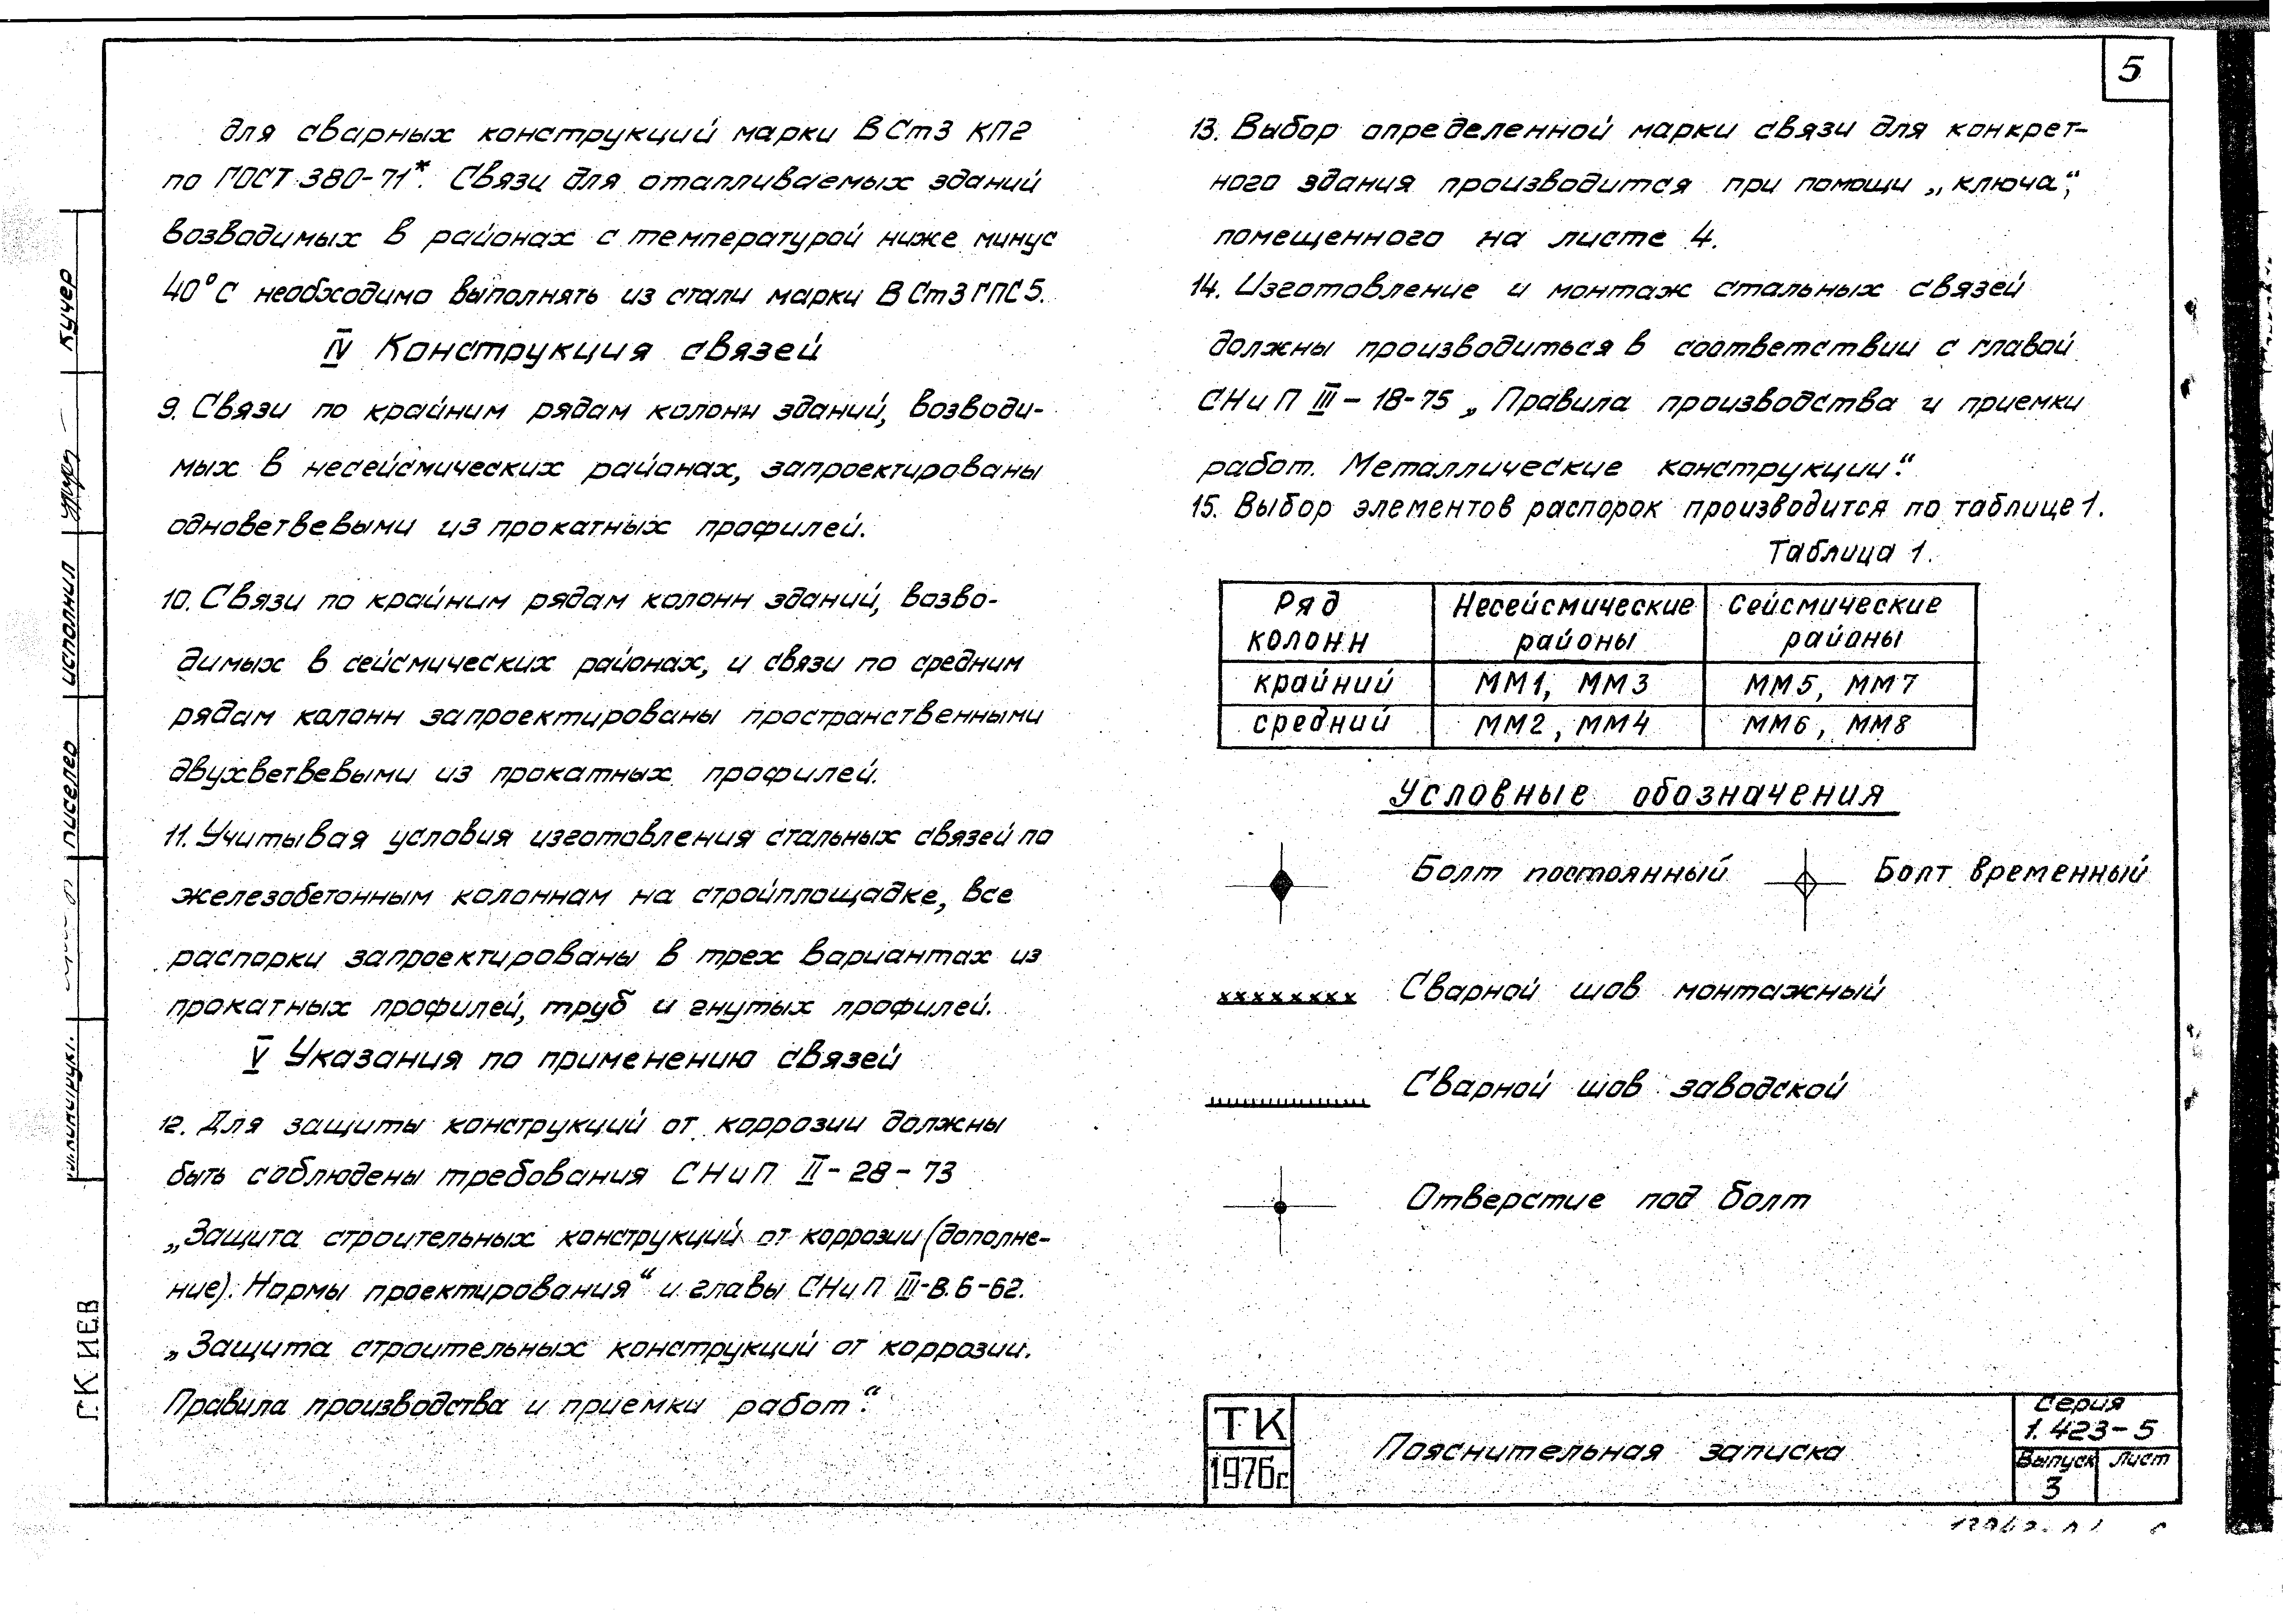 5
для сварных конструкций марки ВСт3 кп2
по ГОСТ 380-71*. Связи для отапливаемых зданий
возводимых в районах с температурой ниже минус
40°С необходимо выполнять из стали марки ВСт3ГПС5.
IV Конструкция связей
9. Связи по крайним рядам колонн зданий, возводи-
мых в несейсмических районах, запроектированы
одноветвевыми из прокатных профилей.
10. Связи по крайним рядам колонн зданий, возво-
димых в сейсмических районах, и связи по средним
рядам колонн запроектированы пространственными
двухветвевыми из прокатных профилей.
11. Учитывая условия изготовления стальных связей по
железобетонным колоннам на стройплощадке, все
распорки запроектированы в трех вариантах из
прокатных профилей, труб и гнутых профилей.
V Указания по применению связей
12. Для защиты конструкций от коррозии должны
быть соблюдены требования СНиП II-28-73
„Защита строительных конструкций от коррозии (дополне-
ние). Нормы проектирования“ и главы СНиП III-В.6-62.
„Защита строительных конструкций от коррозии.
Правила производства и приемки работ“.
13. Выбор определенной марки связи для конкрет-
ного здания производится при помощи „ключа“,
помещенного на листе 4.
14. Изготовление и монтаж стальных связей
должны производиться в соответствии с главой
СНиП III-18-75 „Правила производства и приемки
работ. Металлические конструкции“.
15. Выбор элементов распорок производится по таблице 1.
Таблица 1.
Ряд колонн Несейсмические районы Сейсмические районы
крайний ММ1, ММ3 ММ5, ММ7
средний ММ2, ММ4 ММ6, ММ8
Условные обозначения
Болт постоянный Болт временный
Сварной шов монтажный
Сварной шов заводской
Отверстие под болт
ТК
1976г
Пояснительная записка
Серия
1.423-5
Выпуск Лист
3
Кучер
исполнил
г. КИЕВ